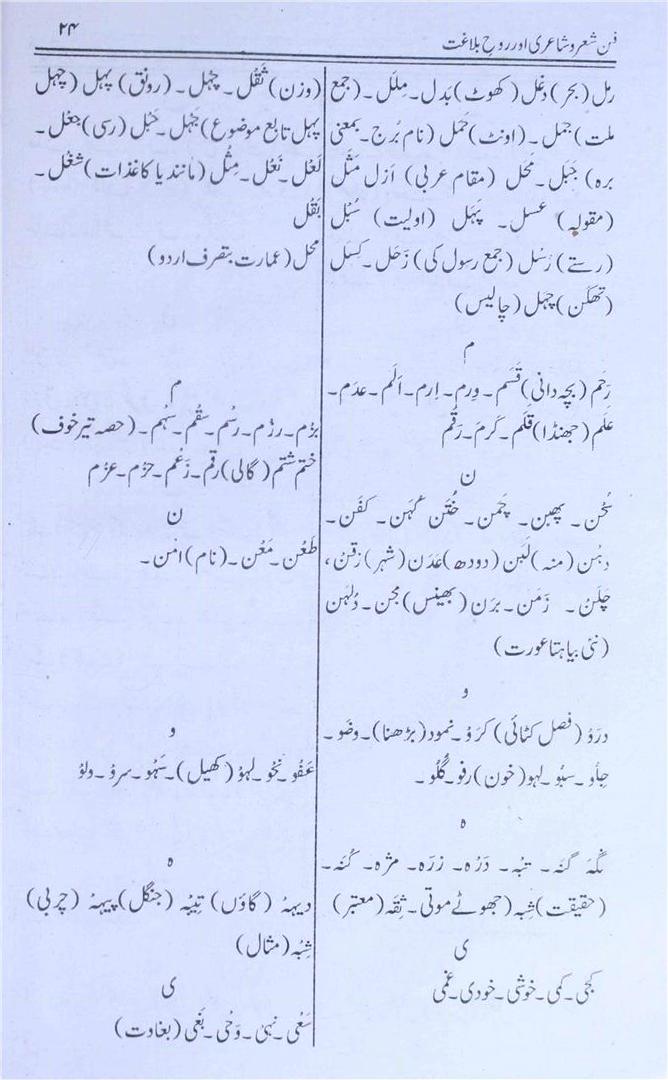 فن شعر و شاعری اور روحِ بلاغت ۲۴
رمل (بحر) دغل (کھوٹ) بدل۔ مِلَل۔ (جمع
ملت) جمل۔ (اونٹ) حَمَل (نام بُرج۔ بمعنی
برہ) جَبَل۔ محل (مقام عربی) اَزل مَثَل
(مقولہ) عسل۔ پَہَل (اولیت) سُبُل
(رستے) رُسُل (جمع رسول کی) زُحَل۔ کِسَل
(تھکن) چہل (چالیس)
م
رَحَم (بچہ دانی) قَسَم۔ وِرم۔ اِرم۔ اَلَم۔ عدَم۔
عَلَم (جھنڈا) قَلَم۔ کَرَم۔ رَقَم
ن
سُخن۔ پھبن۔ چَمن۔ خُتَن گہن۔ کَفَن۔
دہُن (منہ) لَبَن (دودھ) عَدَن (شہر) زقن،
چَلَن۔ زمَن۔ برَن (بھینس) محِن۔ دُلہَن
(نئی بیاہتا عورت)
و
درَو (فصل کٹائی) کرَو۔ نمود (بڑھنا)۔ وضو۔
جِلَو۔ سبُو۔ لہو (خون) رفو۔ گُلُو۔
ہ
نگہ گنَہ۔ تبَہ۔ دَرَہ۔ زرَہ۔ مژہ۔ کُنَہ۔
(حقیقت) شبہ (جھوٹے موتی۔ ثِقَہ (معتبر)
ی
کجی۔ کمی۔ خوشی۔ خودی۔ غمی
(وزن) ثقْل۔ چہْل۔ (رونق) پہل (چہل
پہل تابع موضوع) جَہْل۔ حَبْل (رسی) جعْل۔
لَعْل۔ نَعْل۔ مِثْل (مانند یا کاغذات) شغْل۔
بَقْل
محل (عمارت بتصرف اردو)
م
بزْم۔ رزْم۔ رسْم۔ سقْم۔ سہْم۔ (حصہ تیر خوف)
ختم شتم (گالی) رقم۔ زَعْم۔ حزْم۔ عزْم
ن
طَعْن۔ مَعْن۔ (نام) امْن۔
و
عَفْو۔ نحْو۔ لہوْ (کھیل)۔ سَہْو۔ سروْ۔ ولوْ
ہ
دیہہْ (گاؤں) تِیْہ (جنگل) پیہہْ (چربی)
شِبْہ (مثال)
ی
سَعْی۔ نہْی۔ وَحْی۔ بَغْی (بغاوت)